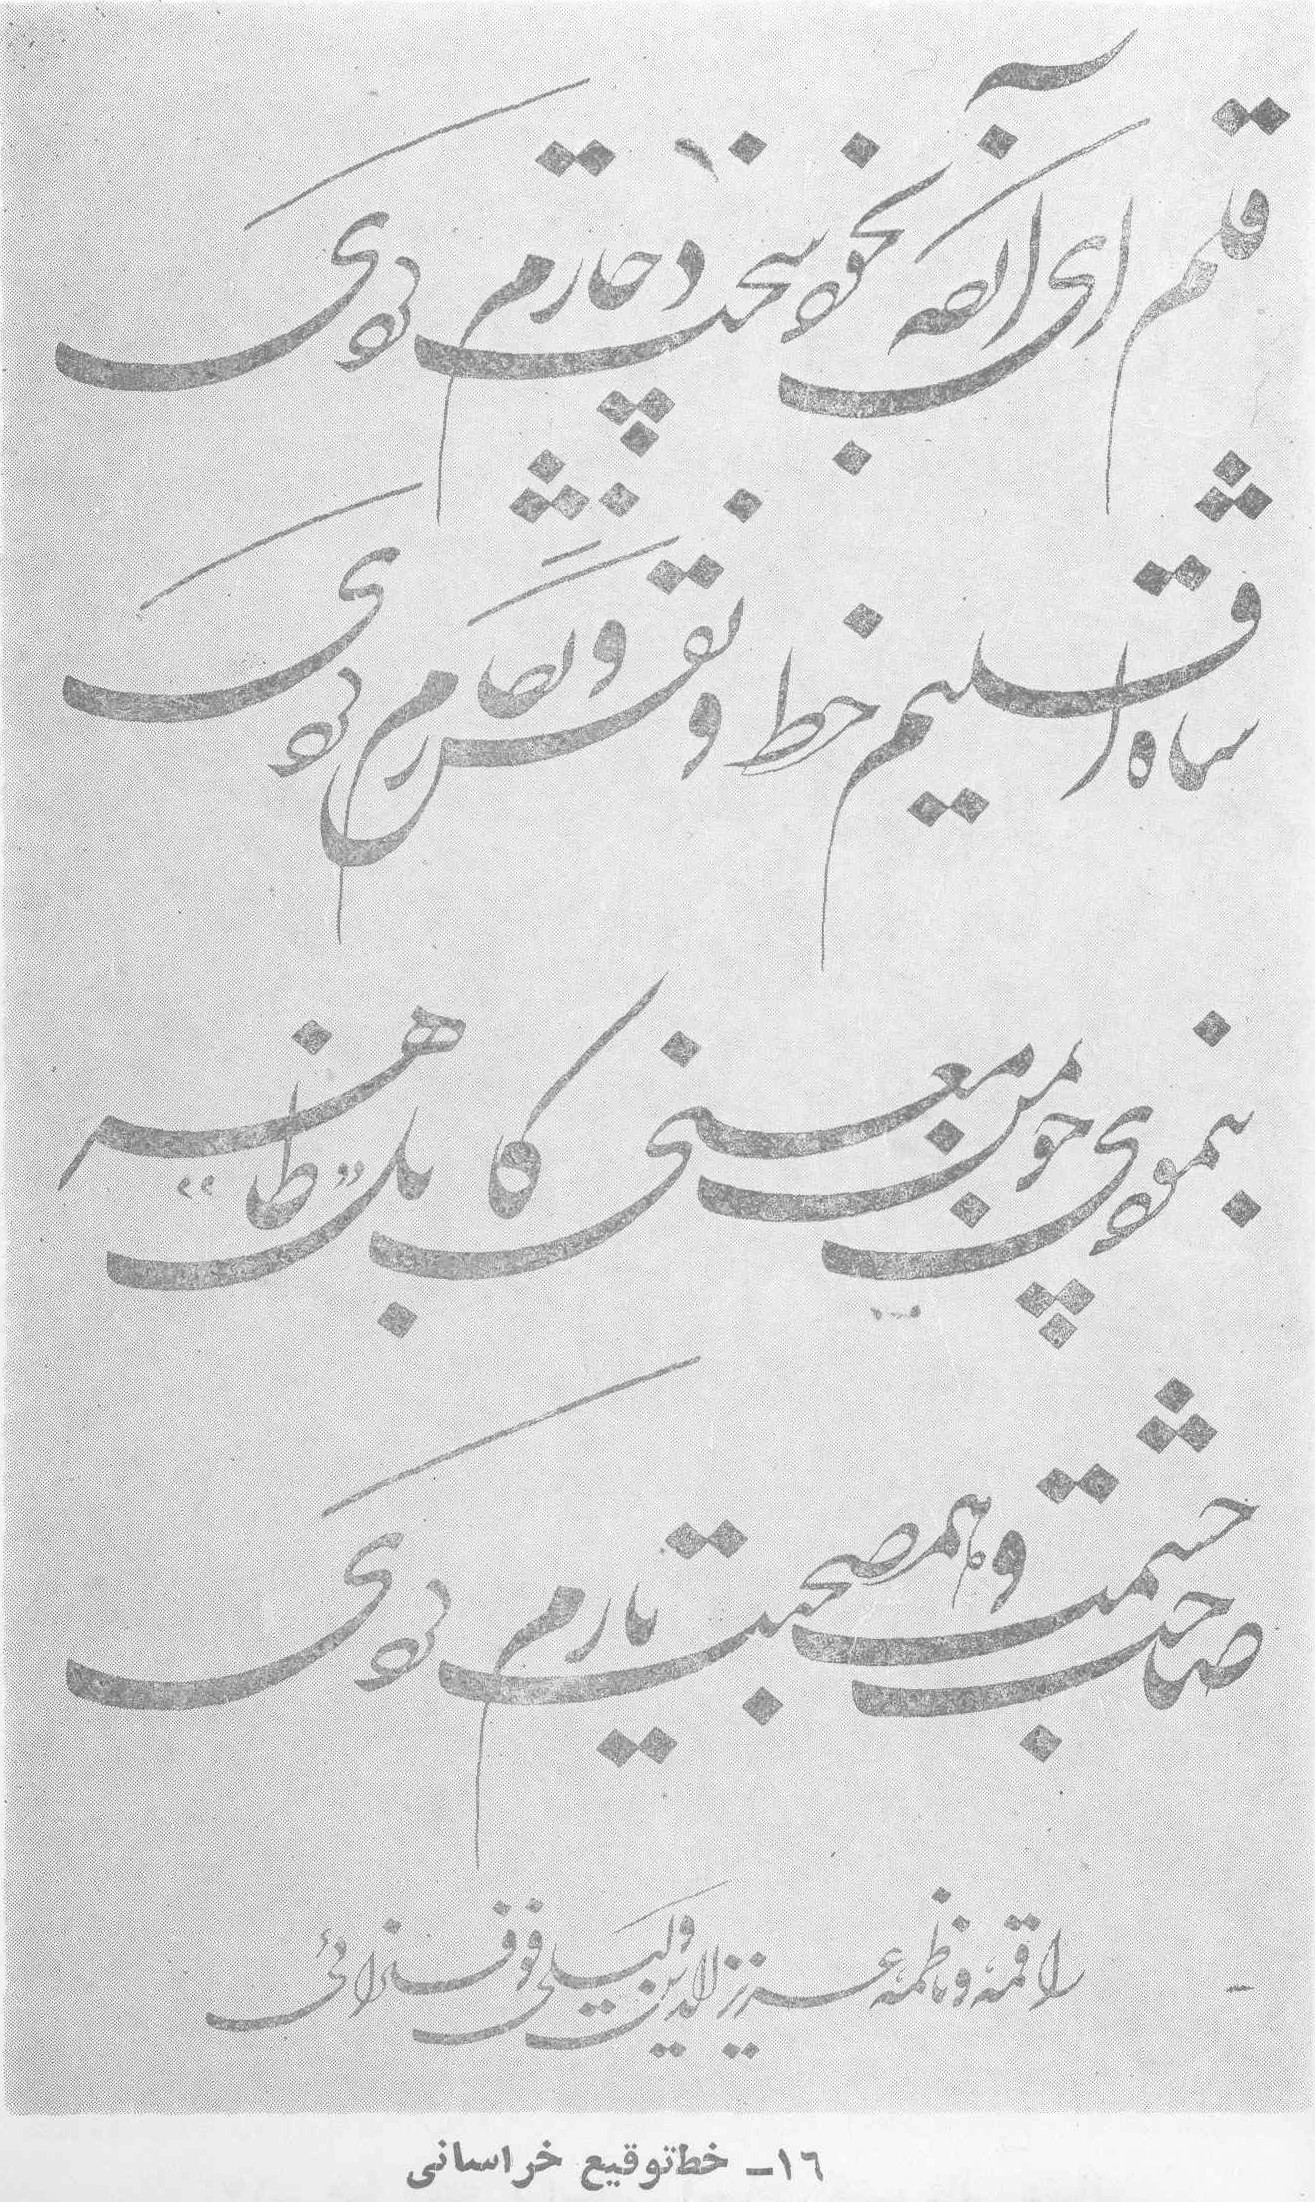 قلم ای آنکه بخود سخت دچارم کردی
شاه اقلیم خط و نقش و نگارم کردی
بنمودی چو بمن معنی کابل «ظاهر»
صاحب حشمت و هم صحبت یارم کردی
راقمه و ناظمه عزیزالدین وکیلی فوفلزائی
١٦ـ خط توقیع خراسانی